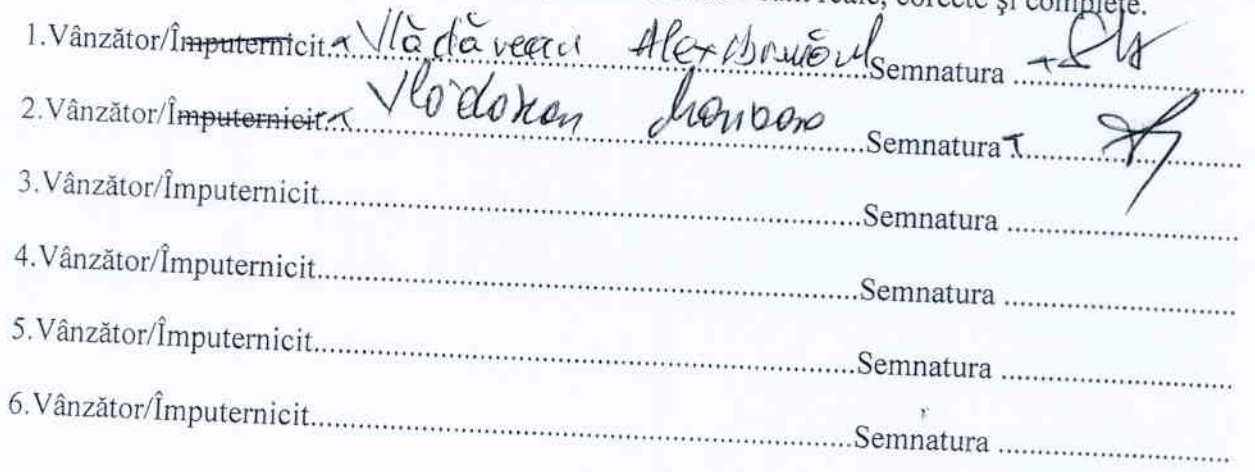 reale, corecte și complete.
1.Vânzător/Împuternicit.....Semnatura .....
2.Vânzător/Împuternicit.....Semnatura.....
3.Vânzător/Împuternicit.....Semnatura .....
4.Vânzător/Împuternicit.....Semnatura .....
5.Vânzător/Împuternicit.....Semnatura .....
6.Vânzător/Împuternicit.....Semnatura .....